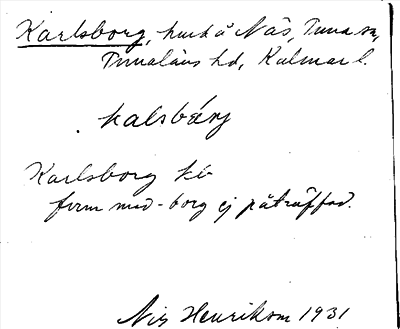 Karlsborg, hus å Näs, Tuna sn,
Tunaläns hd, Kalmar l.
kalsbårj
Karlsborg kb
form med -borg ej påträffad.
Nils Henrikson 1931